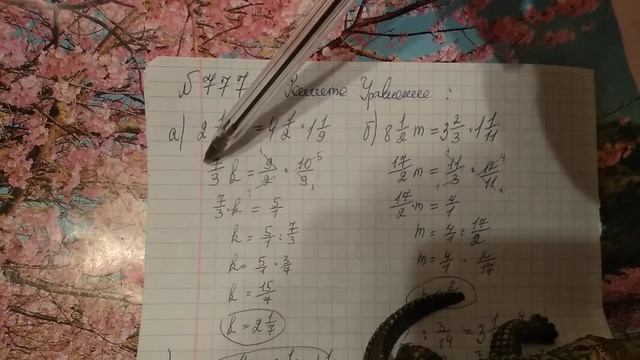 № 777 Решите Уравнение:
а) 2 1/ = 4 1/2 · 1 1/9
7/3 k = 9/2 · 10/9
7/3 · k = 5/1
k = 5/1 : 7/3
k = 5/1 · 3/7
k = 15/7
k = 2 1/7
б) 8 1/2 m = 3 2/3 · 1 1/11
17/2 m = 11/3 · 12/11
17/2 · m = 4/1
m = 4/1 : 17/2
m = 4/1 · 2/17
: 3/14 = 3 1/